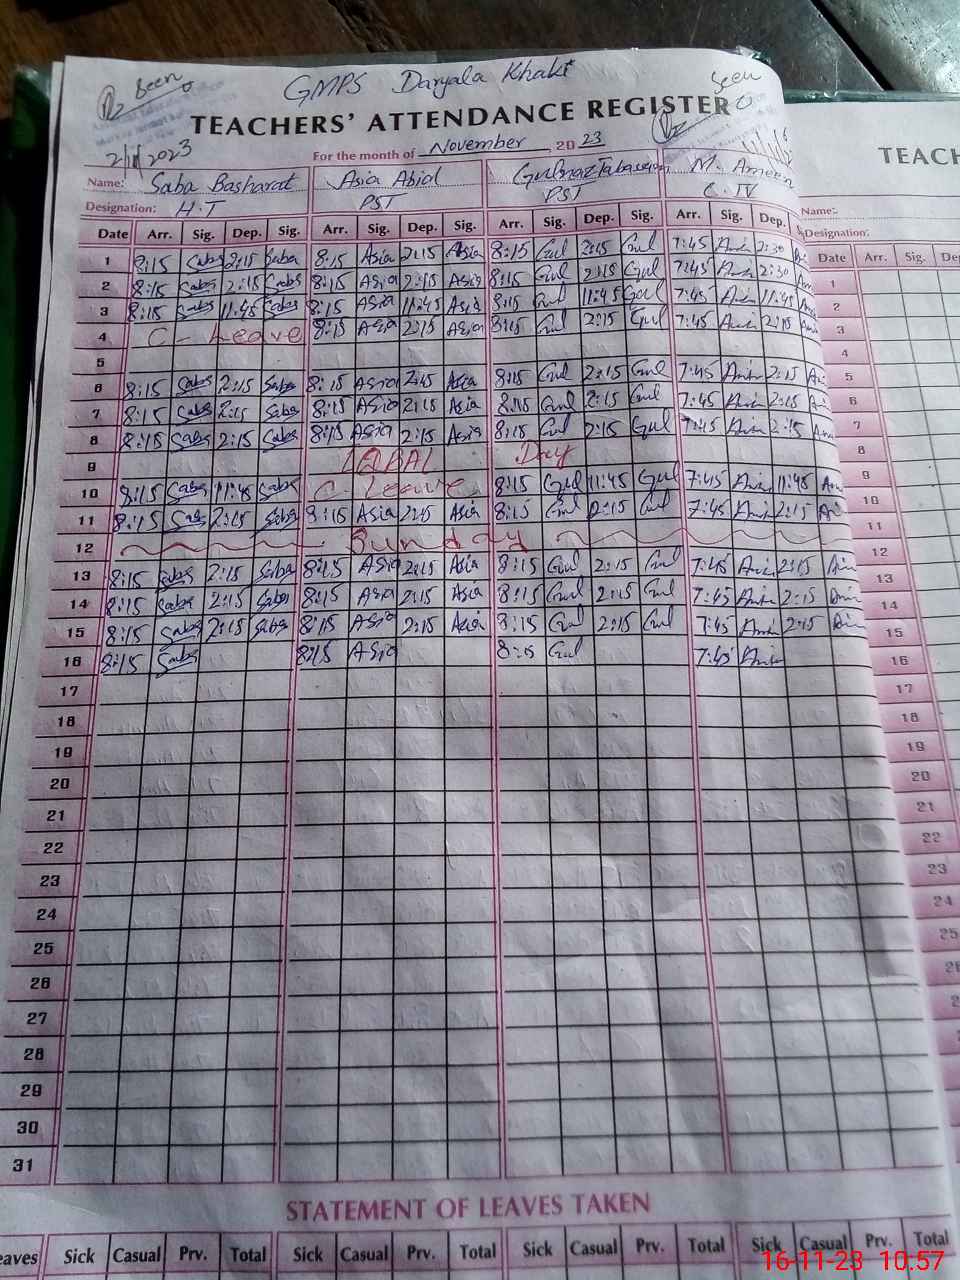 Seen
GMPS Daryala Khaki
Seen
TEACHERS' ATTENDANCE REGISTER
TEACH
2/11/2023
For the month of November 20 23
Name: Saba Basharat Asia Abid Gulnaz Tabassum M. Ameen
Name:
Designation: H.T PST PST C. IV
Designation:
Date Arr. Sig. Dep. Sig. Arr. Sig. Dep. Sig. Arr. Sig. Dep. Sig. Arr. Sig. Dep.
Date Arr. Sig. De
1 8:15 Saba 2:15 Saba 8:15 Asia 2:15 Asia 8:15 Gul 2:15 Gul 7:45 Amin 2:30
2 8:15 Saba 2:15 Saba 8:15 Asia 2:15 Asia 8:15 Gul 2:15 Gul 7:45 Amin 2:30
3 8:15 Saba 11:45 Saba 8:15 Asia 11:45 Asia 8:15 Gul 11:45 Gul 7:45 Amin 11:45
4 C- Leave 8:15 Asia 2:15 Asia 8:15 Gul 2:15 Gul 7:45 Amin 2:15
5
6 8:15 Saba 2:15 Saba 8:15 Asia 2:15 Asia 8:15 Gul 2:15 Gul 7:45 Amin 2:15
7 8:15 Saba 2:15 Saba 8:15 Asia 2:15 Asia 8:15 Gul 2:15 Gul 7:45 Amin 2:15
8 8:15 Saba 2:15 Saba 8:15 Asia 2:15 Asia 8:15 Gul 2:15 Gul 7:45 Amin 2:15
9 IQBAL Day
10 8:15 Saba 11:45 Saba C- Leave 8:15 Gul 11:45 Gul 7:45 Amin 11:45
11 8:15 Saba 2:15 Saba 8:15 Asia 2:15 Asia 8:15 Gul 2:15 Gul 7:45 Amin 2:15
12 Sunday
13 8:15 Saba 2:15 Saba 8:15 Asia 2:15 Asia 8:15 Gul 2:15 Gul 7:45 Amin 2:15 Amin
14 8:15 Saba 2:15 Saba 8:15 Asia 2:15 Asia 8:15 Gul 2:15 Gul 7:45 Amin 2:15 Amin
15 8:15 Saba 2:15 Saba 8:15 Asia 2:15 Asia 8:15 Gul 2:15 Gul 7:45 Amin 2:15 Amin
16 8:15 Saba 8:15 Asia 8:15 Gul 7:45 Amin
17
18
19
20
21
22
23
24
25
26
27
28
29
30
31
1
2
3
4
5
6
7
8
9
10
11
12
13
14
15
16
17
18
19
20
21
22
23
24
25
STATEMENT OF LEAVES TAKEN
eaves Sick Casual Prv. Total Sick Casual Prv. Total Sick Casual Prv. Total Sick Casual Prv. Total
16-11-23 10:57